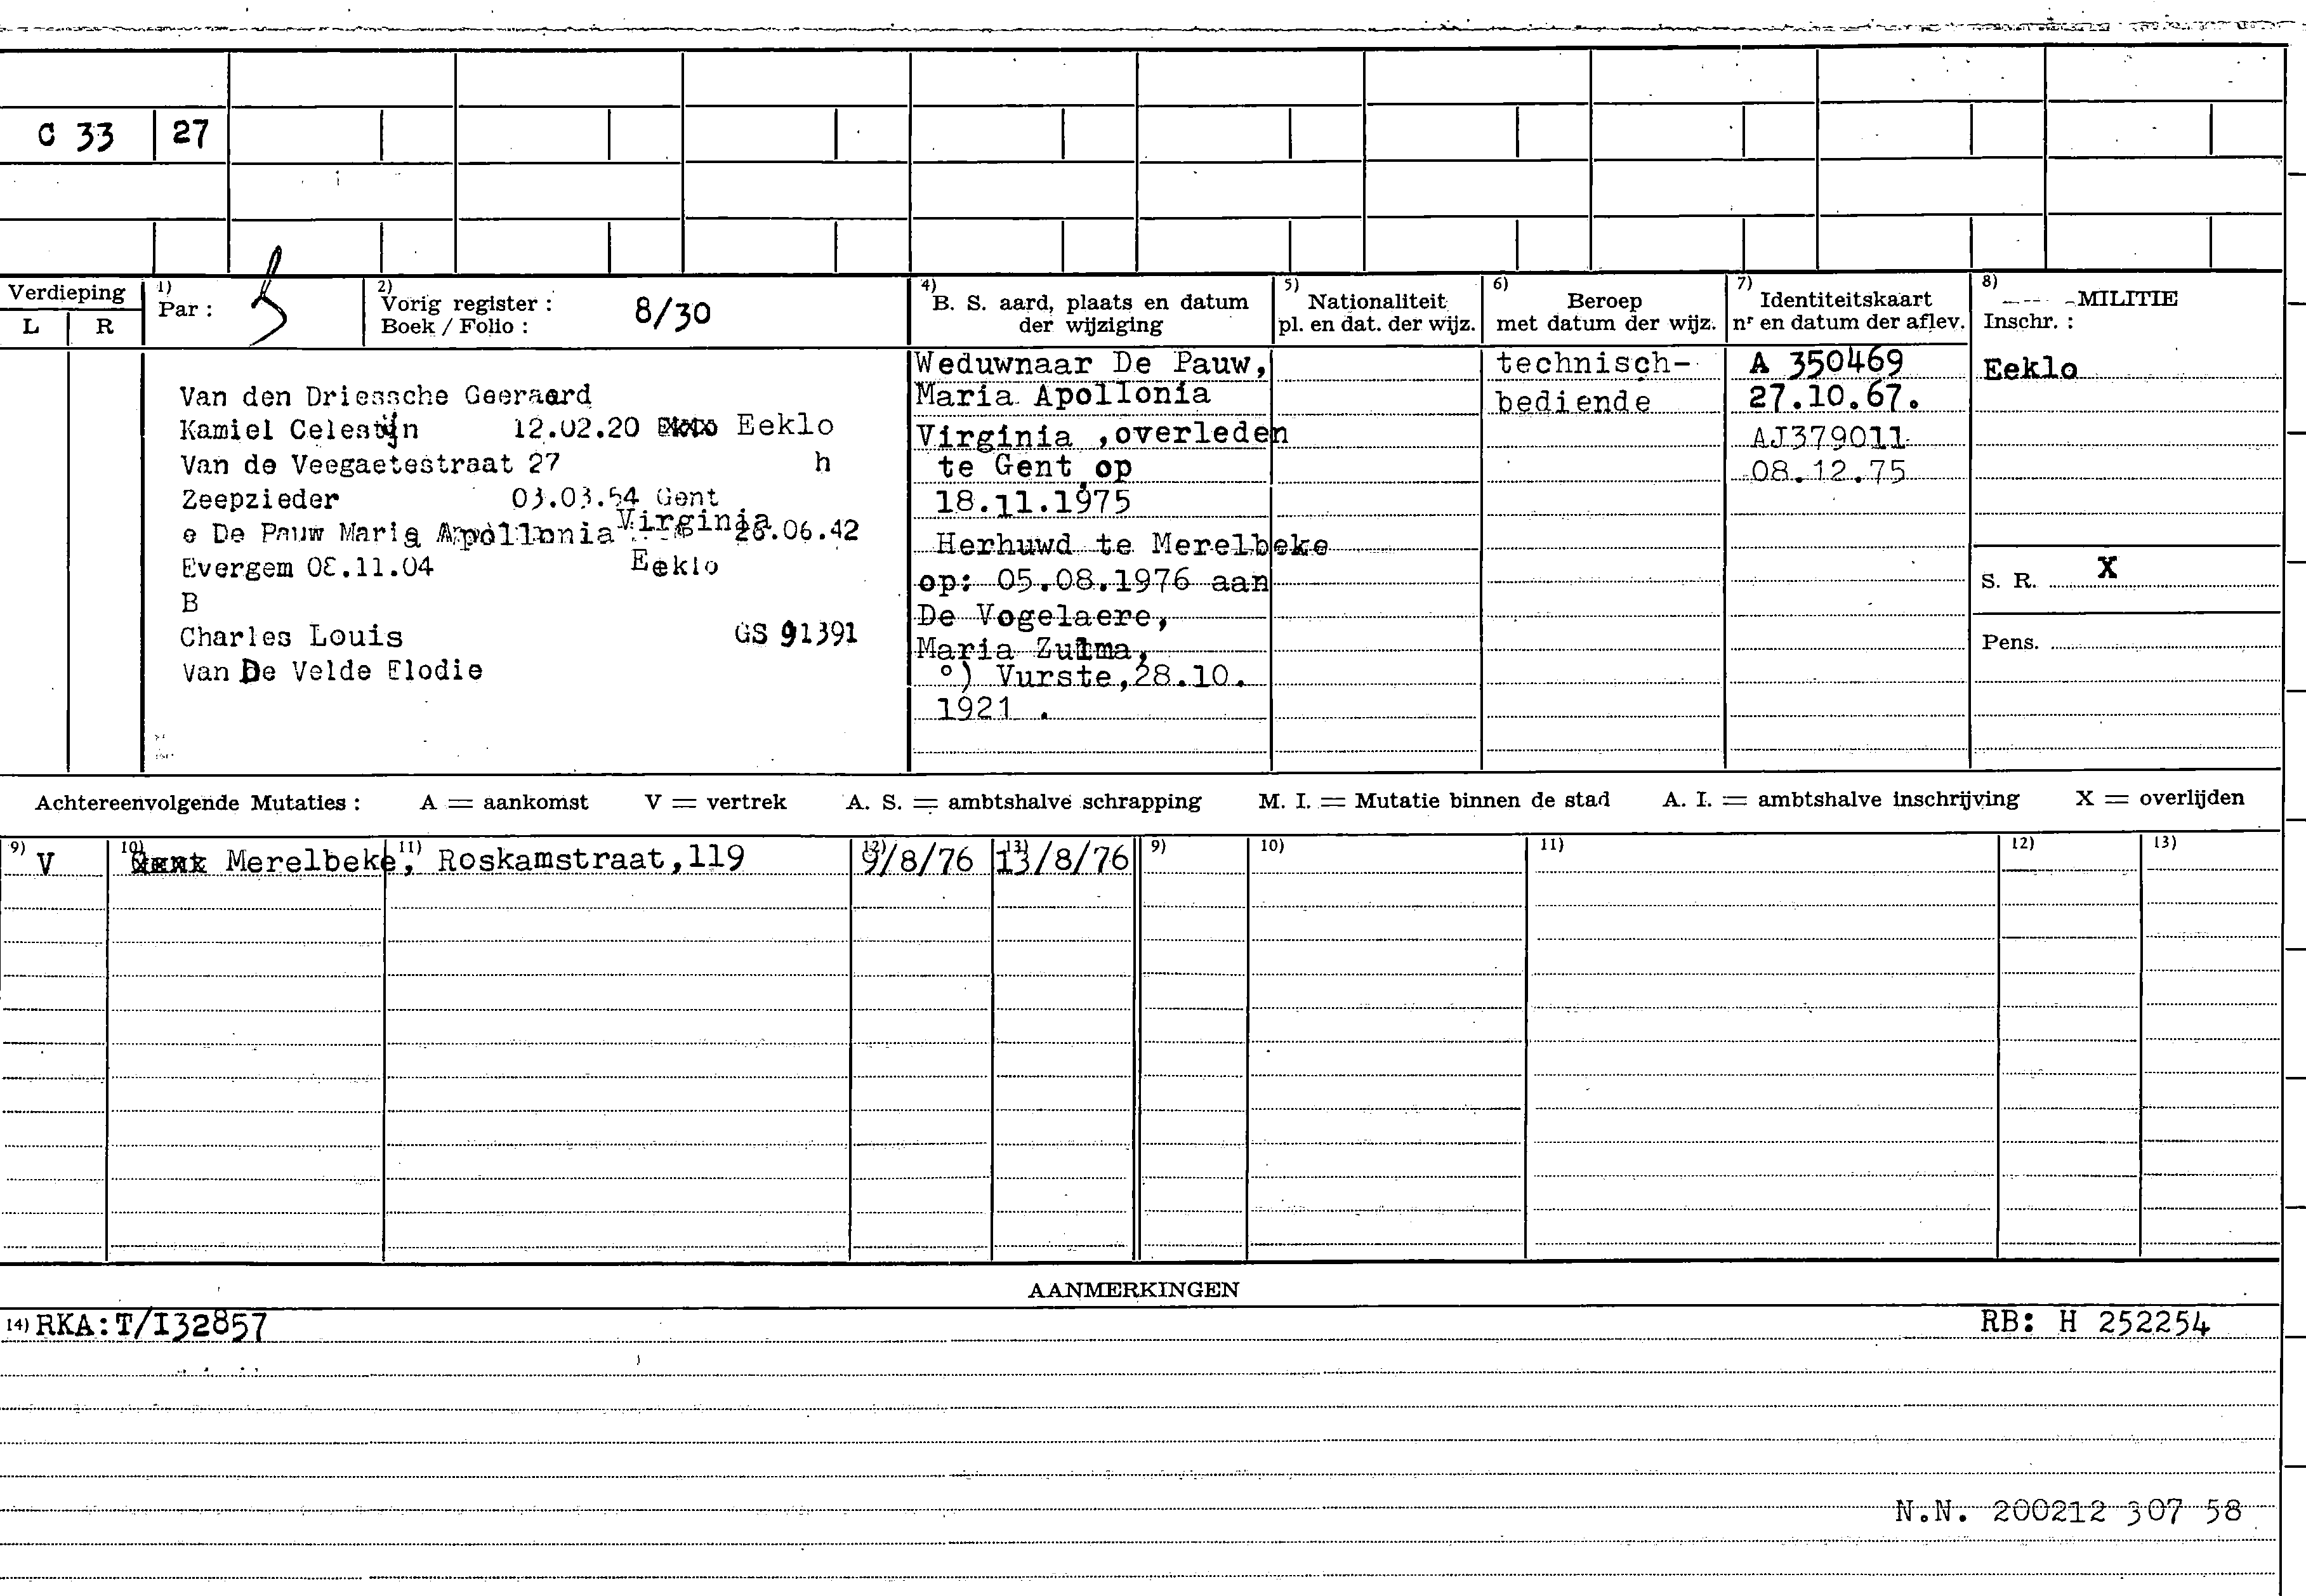 C 33 27
Verdieping
L R
1)
Par :
2)
Vorig register :
Boek / Folio :
8/30
4)
B. S. aard, plaats en datum
der wijziging
5)
Nationaliteit
pl. en dat. der wijz.
6)
Beroep
met datum der wijz.
7)
Identiteitskaart
nr en datum der aflev.
8)
MILITIE
Inschr. :
Van den Driessche Geeraard
Kamiel Celestijn 12.02.20 Eeklo
Van de Veegaetestraat 27 h
Zeepzieder 03.03.54 Gent
e De Pauw Maria Apollonia Virginia 26.06.42
Evergem 08.11.04 Eeklo
B
Charles Louis GS 91391
Van De Velde Elodie
Weduwnaar De Pauw,
Maria Apollonia
Virginia ,overleden
te Gent op
18.11.1975
Herhuwd te Merelbeke
op: 05.08.1976 aan
De Vogelaere,
Maria Zulma,
°) Vurste,28.10.
1921 .
technisch-
bediende
A 350469
27.10.67.
AJ379011
08.12.75
Eeklo
S. R. X
Pens.
Achtereenvolgende Mutaties : A = aankomst V = vertrek A. S. = ambtshalve schrapping M. I. = Mutatie binnen de stad A. I. = ambtshalve inschrijving X = overlijden
9) 10) 11) 12) 13) 9) 10) 11) 12) 13)
V Merelbeke, Roskamstraat,119 9/8/76 13/8/76
AANMERKINGEN
14) RKA:T/I32857 RB: H 252254
N.N. 200212 307 58